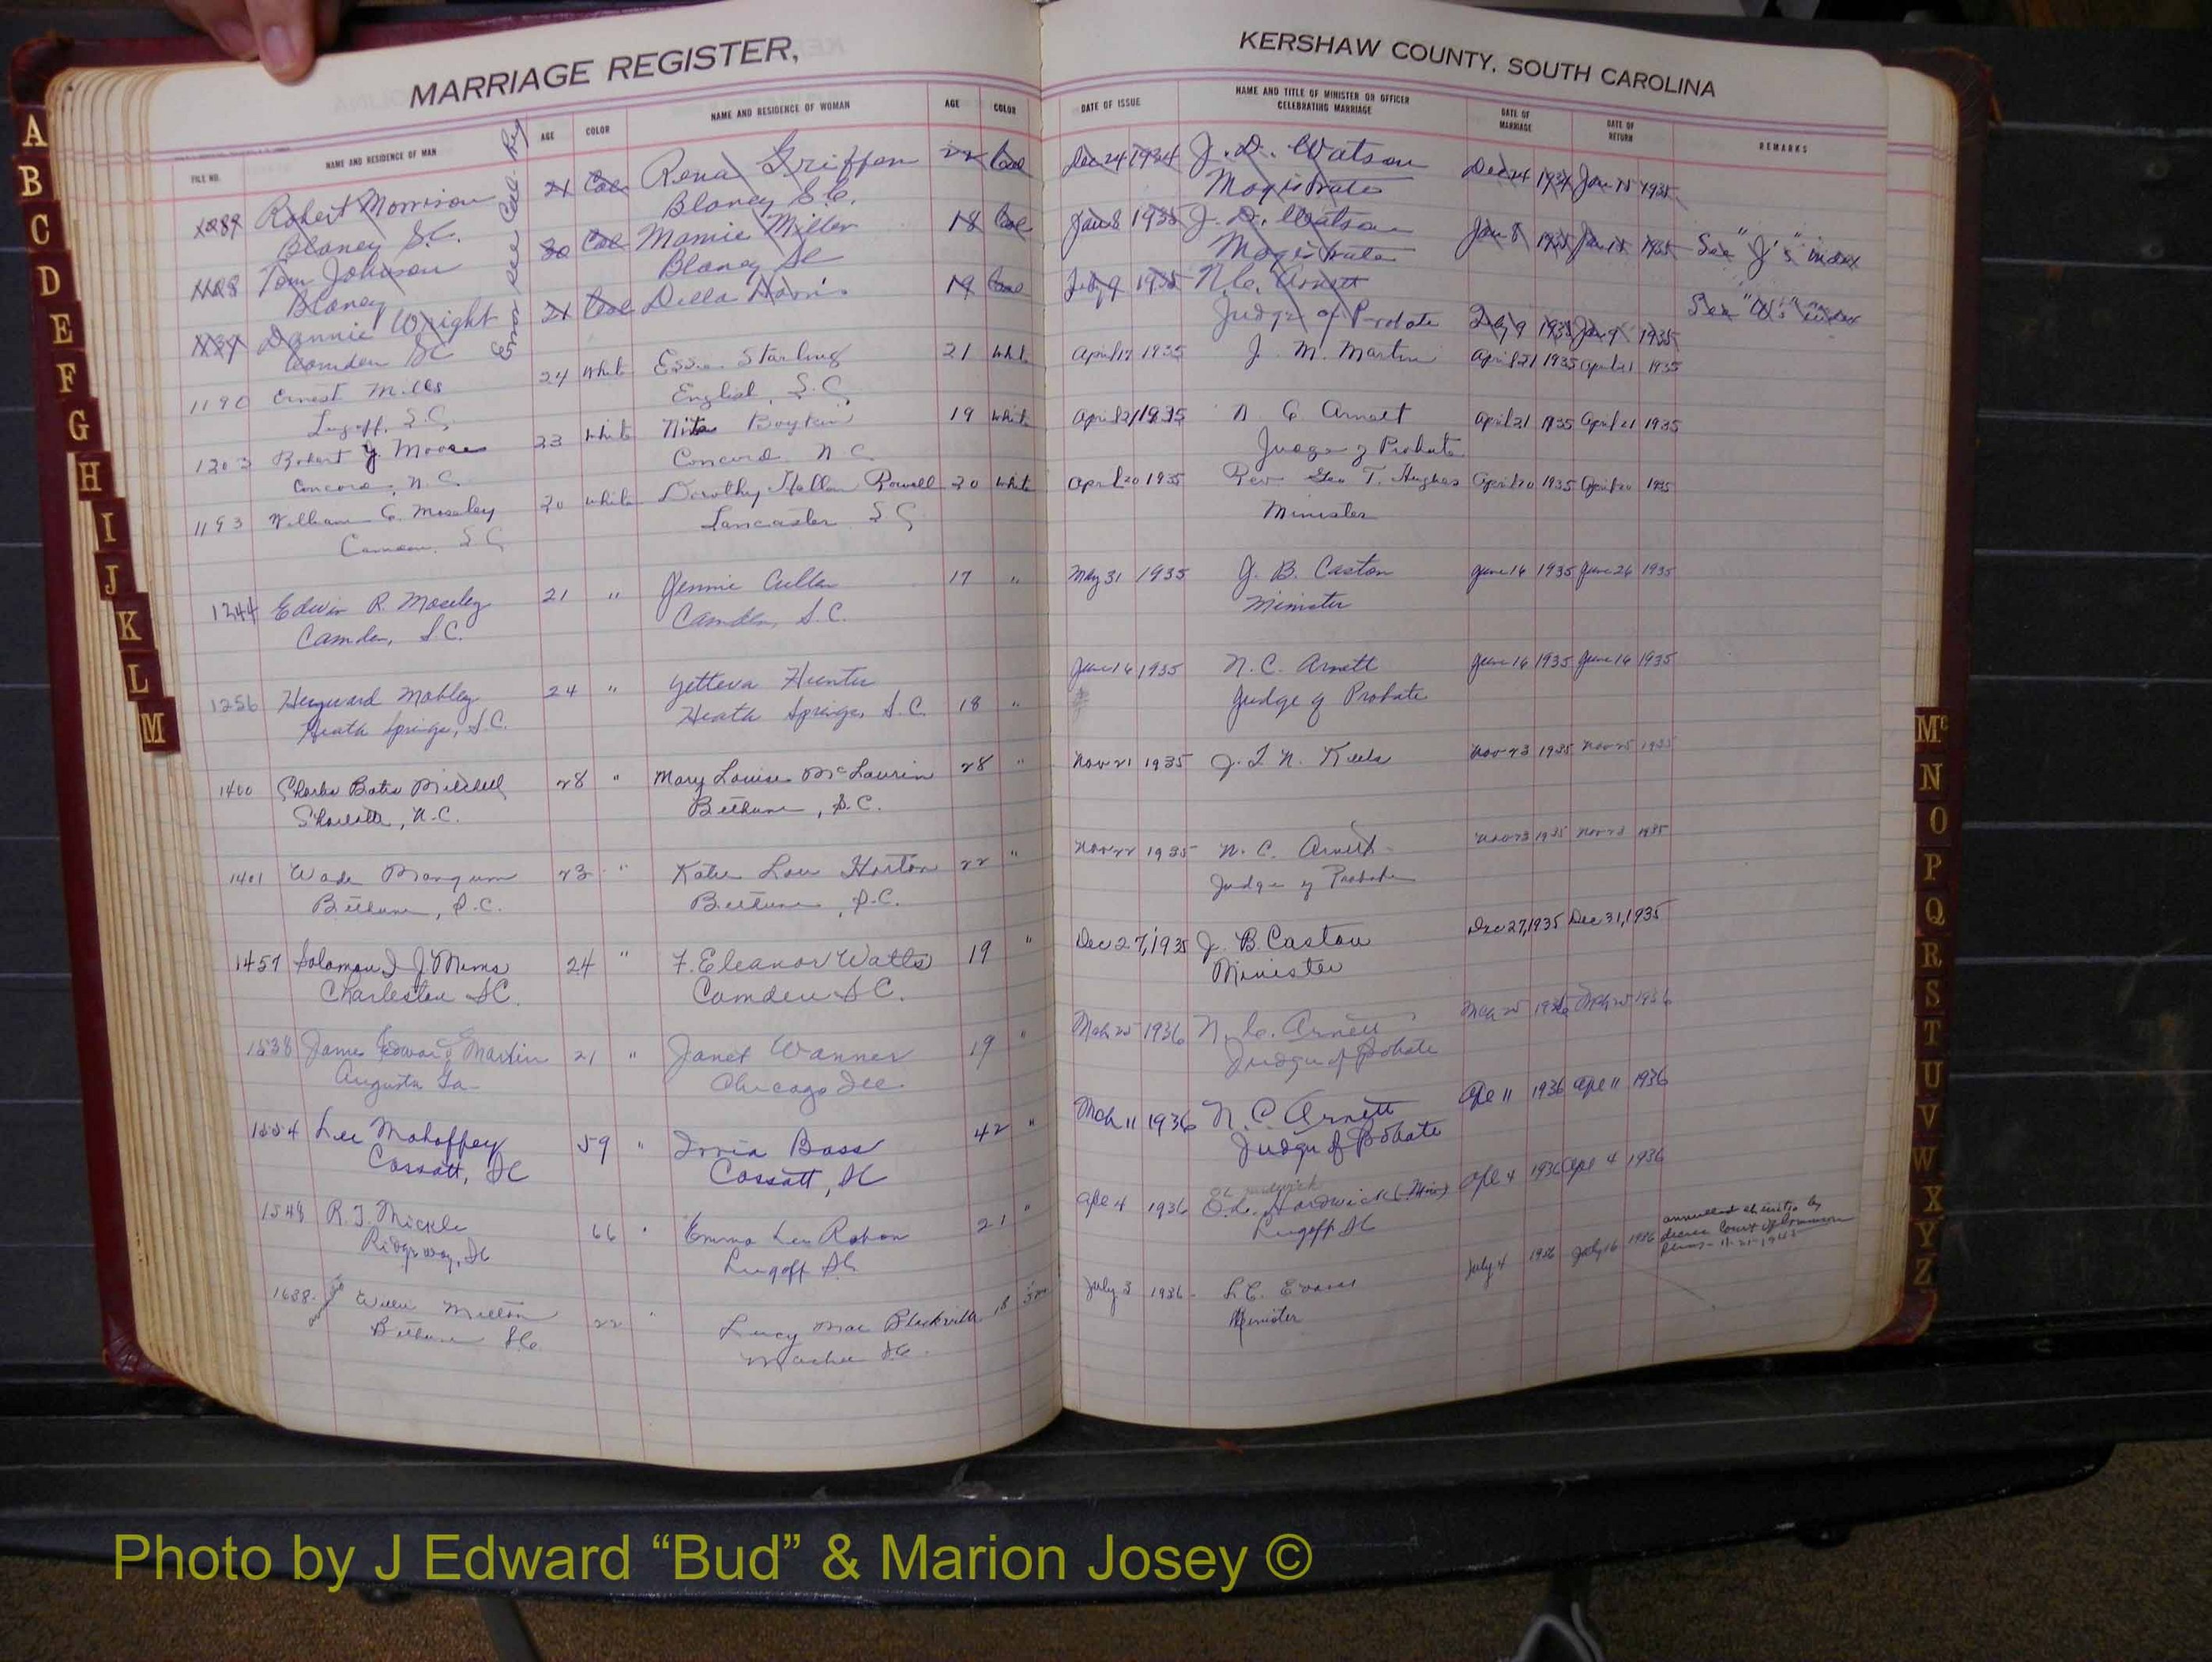 MARRIAGE REGISTER, KERSHAW COUNTY, SOUTH CAROLINA
FILE NO. NAME AND RESIDENCE OF MAN AGE COLOR NAME AND RESIDENCE OF WOMAN AGE COLOR DATE OF ISSUE NAME AND TITLE OF MINISTER OR OFFICER CELEBRATING MARRIAGE DATE OF MARRIAGE DATE OF RETURN REMARKS
Error see Col. Reg
Robert Morrison 21 Col Rena Griffen 22 Col Dec 24 1934 J. D. Watson Dec 24 1934 Jan 15 1935
Blaney S.C. Blaney S.C. Magistrate
Tom Johnson 20 Col Mamie Miller 18 Col Jan 8 1935 J. D. Watson Jan 8 1935 Jan 15 1935 See "J's" index
Blaney Blaney SC Magistrate
Dannie Wright 21 Col Della Harris 19 Col 1935 N.C. Arnett 1935 1935 See "W's" index
Camden SC Judge of Probate
1190 Ernest Mills 24 White Starling 21 White April 17 1935 J. M. Martin April 21 1935 April 21 1935
Lugoff, S.C. English, S.C.
1203 Robert Y. Moore 23 White Boykin 19 White April 21 1935 N C Arnett April 21 1935 April 21 1935
Concord, N.C. Concord N C Judge of Probate
1193 William C. Moseley 20 White Dorothy Rowell 20 White April 20 1935 Rev Geo T. Hughes April 20 1935 April 20 1935
Camden, S.C. Lancaster S C Minister
1244 Edwin R. Moseley 21 " Jennie Cullen 17 " May 31 1935 J. B. Caston June 16 1935 June 26 1935
Camden, S.C. Camden, S.C. Minister
1256 Heyward Mobley 24 " Hunter June 16 1935 N. C. Arnett June 16 1935 June 16 1935
Heath Springs, S.C. Heath Springs, S.C. 18 " Judge of Probate
1400 Charles Bates Mitchell 28 " Mary Louise McLaurin 28 " Nov 21 1935 Nov 23 1935 Nov 25 1935
N.C. Bethune, S.C.
1401 Wade Mangum 23 " Katie Lou Horton 22 " Nov 22 1935 N. C. Arnett Nov 23 1935 Nov 23 1935
Bethune, S.C. Bethune, S.C. Judge of Probate
1457 Solomon I J. Mims 24 " F. Eleanor Watts 19 " Dec 27, 1935 J. B. Caston Dec 27, 1935 Dec 31, 1935
Charleston SC. Camden S C. Minister
1538 James Edward Martin 21 " Janet Wanner 19 " Mch 25 1936 N. C. Arnett Mch 25 1936 Mch 25 1936
Augusta Ga Chicago Ill. Judge of Probate
1554 Lee Mahaffey 59 " Bass 42 " Mch 11 1936 N. C. Arnett Apl 11 1936 Apl 11 1936
Cassatt, SC Cassatt, SC Judge of Probate
1548 R. T. Mickle 66 " Emma Lee Rabon 21 " Apl 4 1936 Hardwick (Min) Apl 4 1936 Apl 4 1936
Ridgeway, SC Lugoff SC Lugoff SC
annulled ab initio by
decree Court of Common
Pleas
1638 Willie Melton 22 " Lucy Mae 18 July 3 1936 L.C. Evans July 4 1936 July 16 1936
Bethune SC Minister
A
B
C
D
E
F
G
H
I
J
K
L
M
Mc
N
O
P
Q
R
S
T
U
V
W
X
Y
Z
Photo by J Edward “Bud” & Marion Josey ©